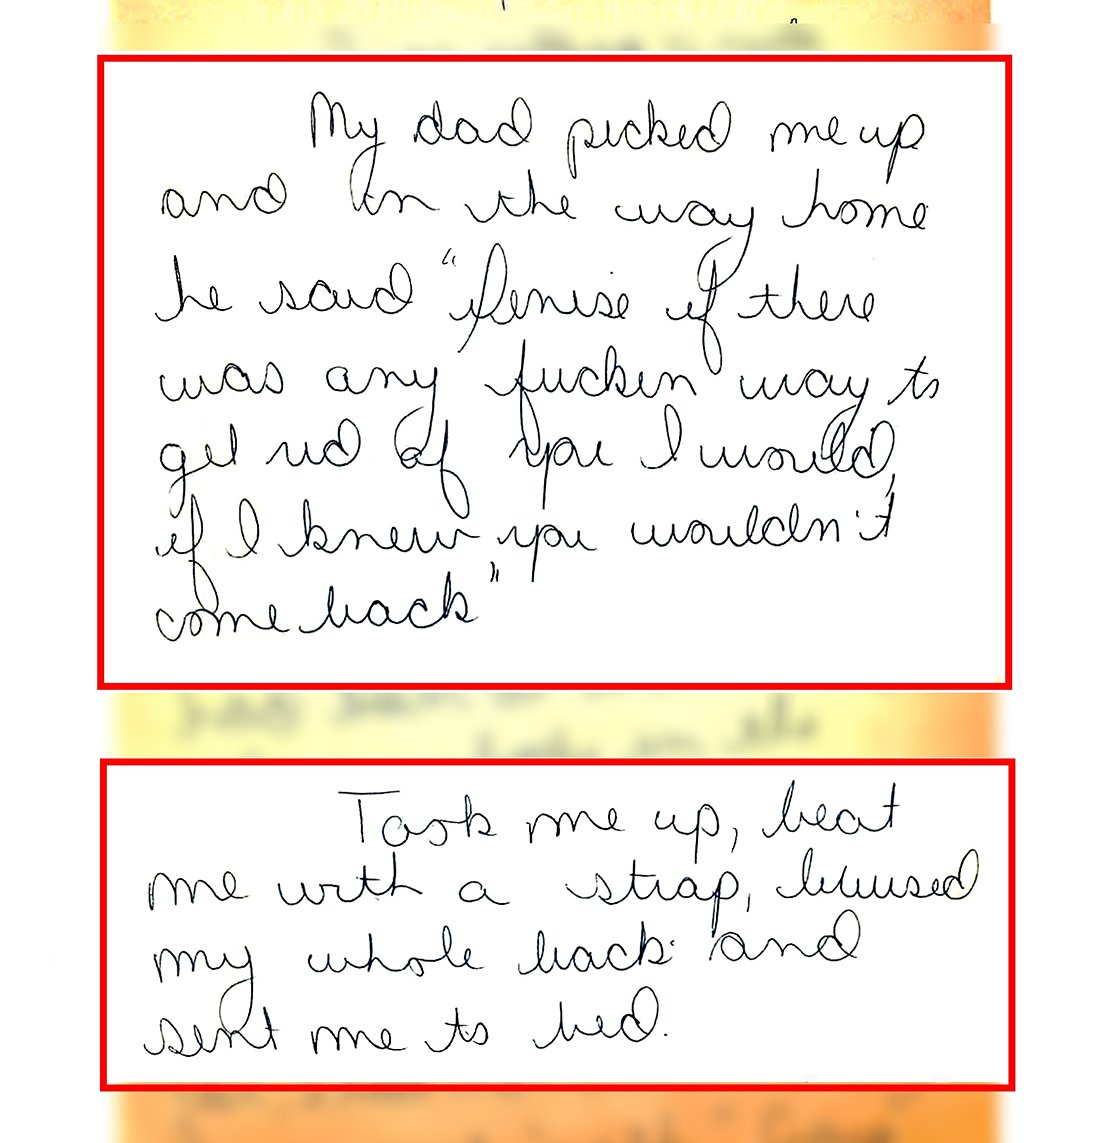 My dad picked me up
and on the way home
he said "Denise if there
was any fuckin way to
get rid of you I would,
if I knew you wouldn't
come back"
Took me up, beat
me with a strap, bruised
my whole back and
sent me to bed.